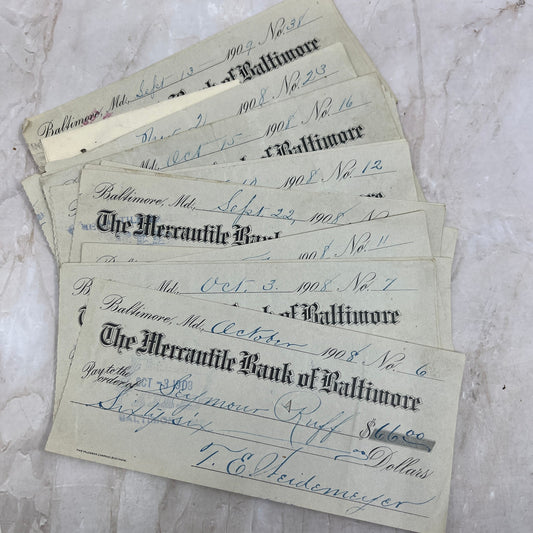 Baltimore, Md., Sept 13 1909 No. 38
Bank of Baltimore
1908 No. 23
Oct 15 1908 No. 16
Bank of Baltimore
1908 No. 12
Baltimore, Md., Sept 22, 1908 No.
The Mercantile Bank
1908 No. 11
Md., Oct 3 1908 No. 7
Bank of Baltimore
Baltimore, Md., October 1908 No. 6
The Mercantile Bank of Baltimore
Pay to the
order of Seymour Ruff $66.00
Sixty six Dollars
T. E. Heidemeyer